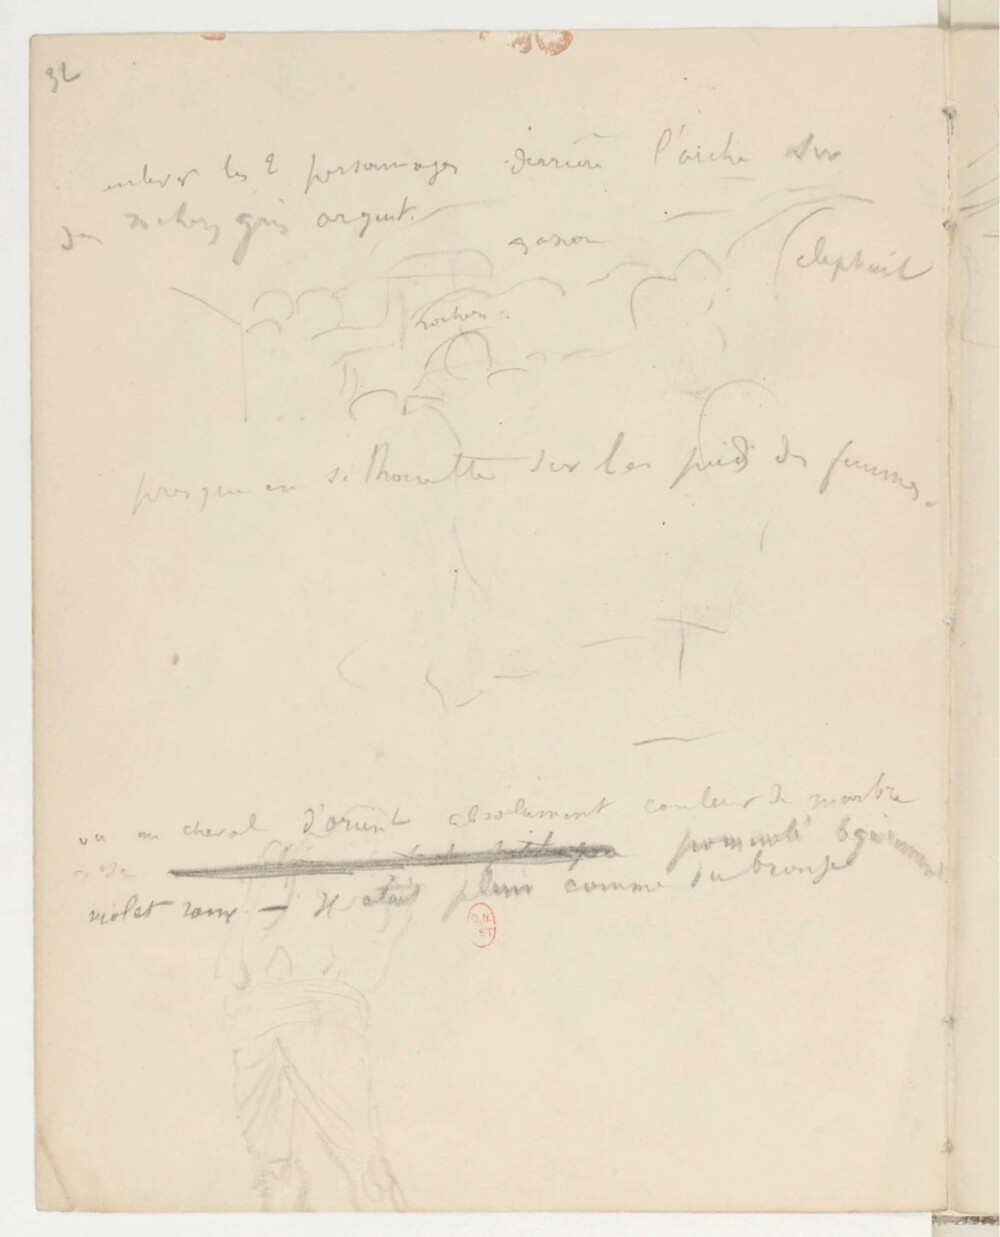 32
enlever les 2 personnages derrière l'arche sur
des rochers gris argent.
gazon
elephant
rochers.
presque en silhouette sur les pieds des femmes.
vu un cheval d'orient absolument couleur de marbre
rose pommelé legerement
violet roux — Il etait plein comme du bronze
B.N.
EST